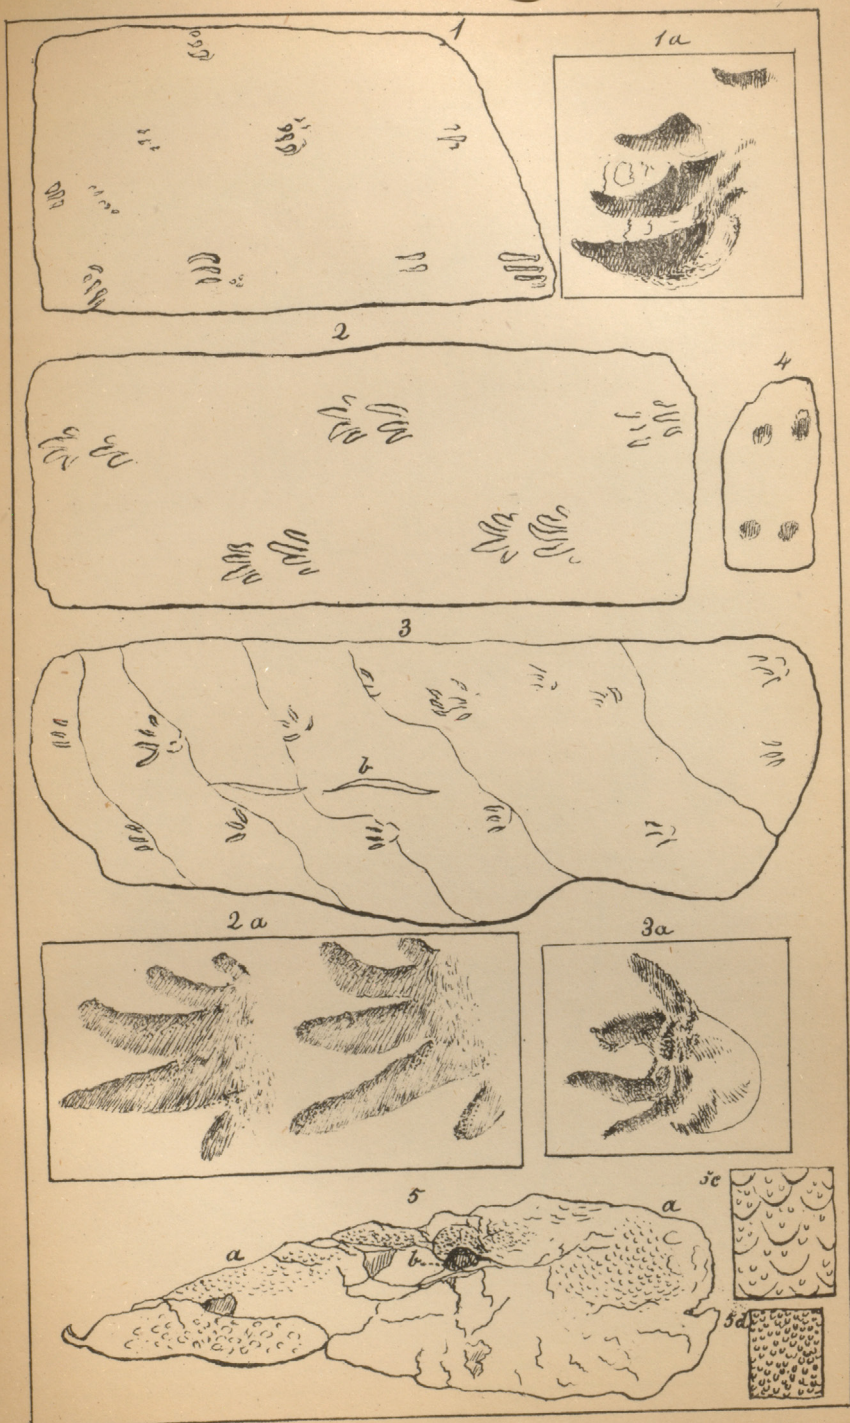 1
1a
2
4
3
b
2a
3a
5
5c
a
a
b
5d